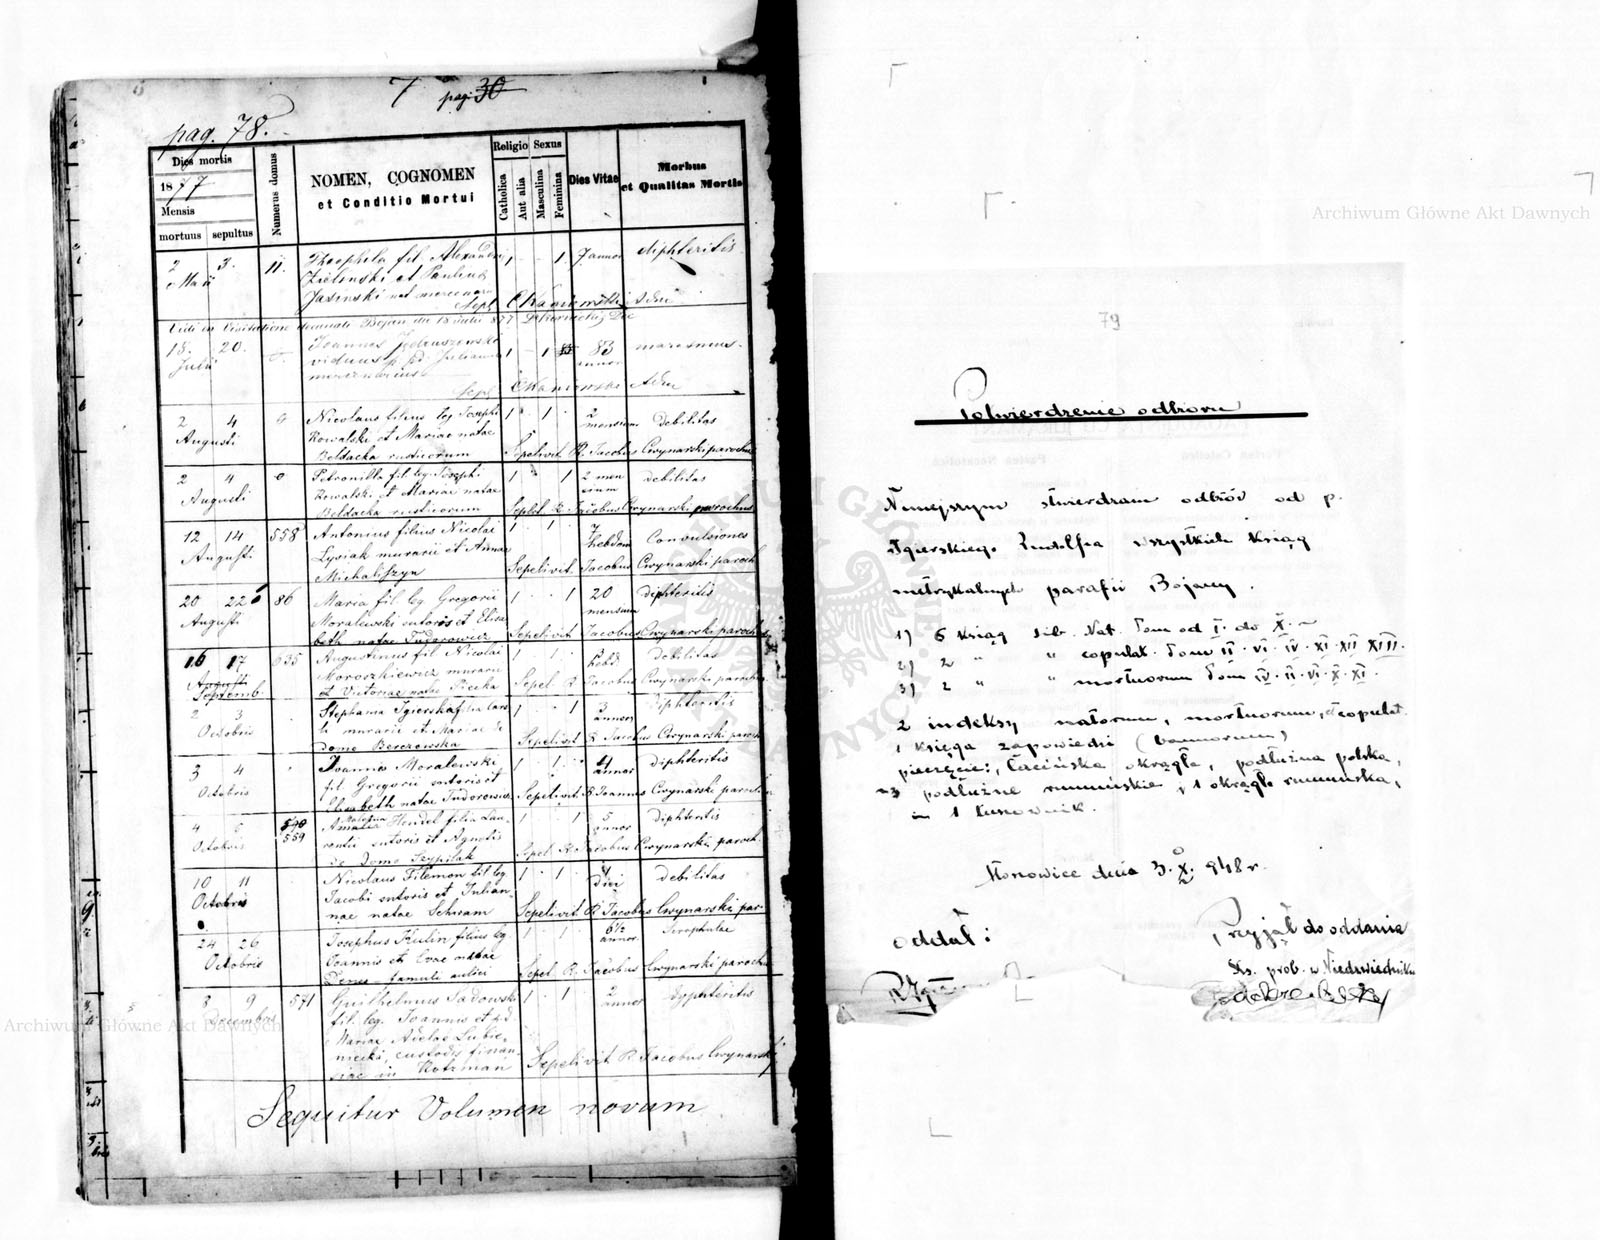 7 pag. 30
pag. 78.
Dies mortis
1877
Mensis
mortuus sepultus
Numerus domus
NOMEN, COGNOMEN
et Conditio Mortui
Religio
Catholica
Aut alia
Sexus
Masculina
Feminina
Dies Vitae
Morbus
et Qualitas Mortis
2 3. 11. Theophila fil. Alexandri 1 1 7 annor diphteritis
Maii Zielinski et Paulina
Jasinski nat mercenar
Vidi in Visitatione decanali Bojan die 18 Julii 877
18. 20. Joannes Jedruszinski 1 1 83 marasmus
Julii viduus Julianna annor
mercenarius
2 4 Nicolaus filius leg Josephi 1 1 2 debilitas
Augusti Kowalski et Mariae natae mensium
Beldacka rusticorum Sepelivit R. Jacobus Cwynarski parochus
2 4 Petronilla fil. leg. Josephi 1 1 2 men debilitas
Augusti Kowalski et Mariae natae sium
Beldacka rusticorum Sepel. R. Jacobus Cwynarski parochus
12 14 558 Antonius filius Nicolai 1 1 7 Convulsiones
Augusti Lysiak murarii et Annae hebdom
Michaliszyn Sepelivit. Jacobus Cwynarski paroch
20 22 86 Maria fil. leg. Gregorii 1 1 20 diphteritis
Augusti Moralewski sutoris et Elisa mensium
beth natae Tudorowicz Sepelivit Jacobus Cwynarski parochus
16 17 635 Augustinus fil Nicolai 1 1 hebd debilitas
Augusti Moroszkiewicz murarii
Septemb. et Victoriae natae Sepel. R. Jacobus Cwynarski parochus
2 3 Stephania Igierska filia 1 1 3 diphteritis
Octobris murarii et Mariae de annor
Domo Berezowska Sepelivit R. Jacobus Cwynarski paroch
3 4 Joannes Moralewski 1 1 4 diphteritis
Octobris fil Gregorii sutoris et annor
Elisabeth natae Tudorowicz Sepelivit. R Cwynarski parochus
4 590 Amalia Hendel filia Lau- 1 1 5 diphteritis
Octobris 559 rentii sutoris et Agnetis annor
de Domo Szypilak Sepel. R. Jacobus Cwynarski paroch.
10 11 Nicolaus Filemon fil leg 1 1 4 debilitas
Octobris Jacobi sutoris et Julian- diei
nae natae Schram Sepelivit R Jacobus Cwynarski par.
24 26 Josephus Kulin filius leg 1 1 6½ Scrophulae
Octobris Joannis et Evae natae annor.
famuli aulici Sepel. R. Jacobus Cwynarski parochus
8 9 571 Guilhelmus Sadowski 1 1 2 Dyphteritis
Decembris fil. leg. Joannis et
Mariae Lubie-
niecki, custodis finan-
ciae in Kotzman Sepelivit R Jacobus Cwynarski
Sequitur Volumen novum
79
Potwierdzenie odbioru
Niniejszym stwierdzam odbiór od p.
Igierskiego Rudolfa wszystkich ksiąg
metrykalnych parafii Bojany.
1) 5 ksiąg lib. Nat. Tom od I. do X.
2) 2 " " copulat. Tom II · VI · IV · XI · XII XIII.
3) 2 " " mortuorum Tom IV · II · VI · X · XI.
2 indeksy natorum, mortuorum, et copulat.
1 księga zapowiedzi (bannorum)
pieczęcie: łacińska okrągła, podłużna polska,
3 podłużne rumuńskie, 1 okrągła rumuńska,
Monowice dnia 3. X. 948 r.
oddał:
Przyjął do oddania
Ks. prob. w Niedźwiedniku
Archiwum Główne Akt Dawnych
Archiwum Główne Akt Dawnych
ARCHIWUM GŁÓWNE AKT DAWNYCH